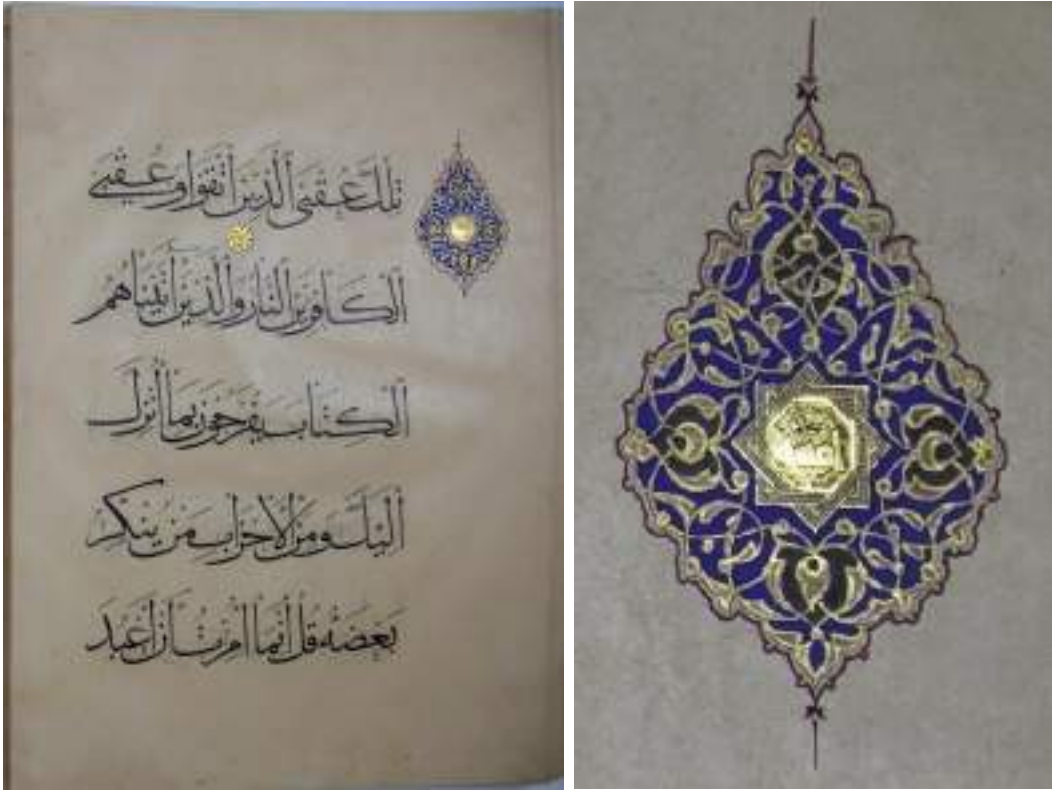 تِلْكَ عُقْبَى ٱلَّذِينَ ٱتَّقَوا وَعُقْبَى
ٱلْكَافِرِينَ ٱلنَّارُ وَٱلَّذِينَ آتَيْنَاهُمُ
ٱلْكِتَابَ يَفْرَحُونَ بِمَا أُنْزِلَ
إِلَيْكَ وَمِنَ ٱلْأَحْزَابِ مَنْ يُنْكِرُ
بَعْضَهُ قُلْ إِنَّمَا أُمِرْتُ أَنْ أَعْبُدَ